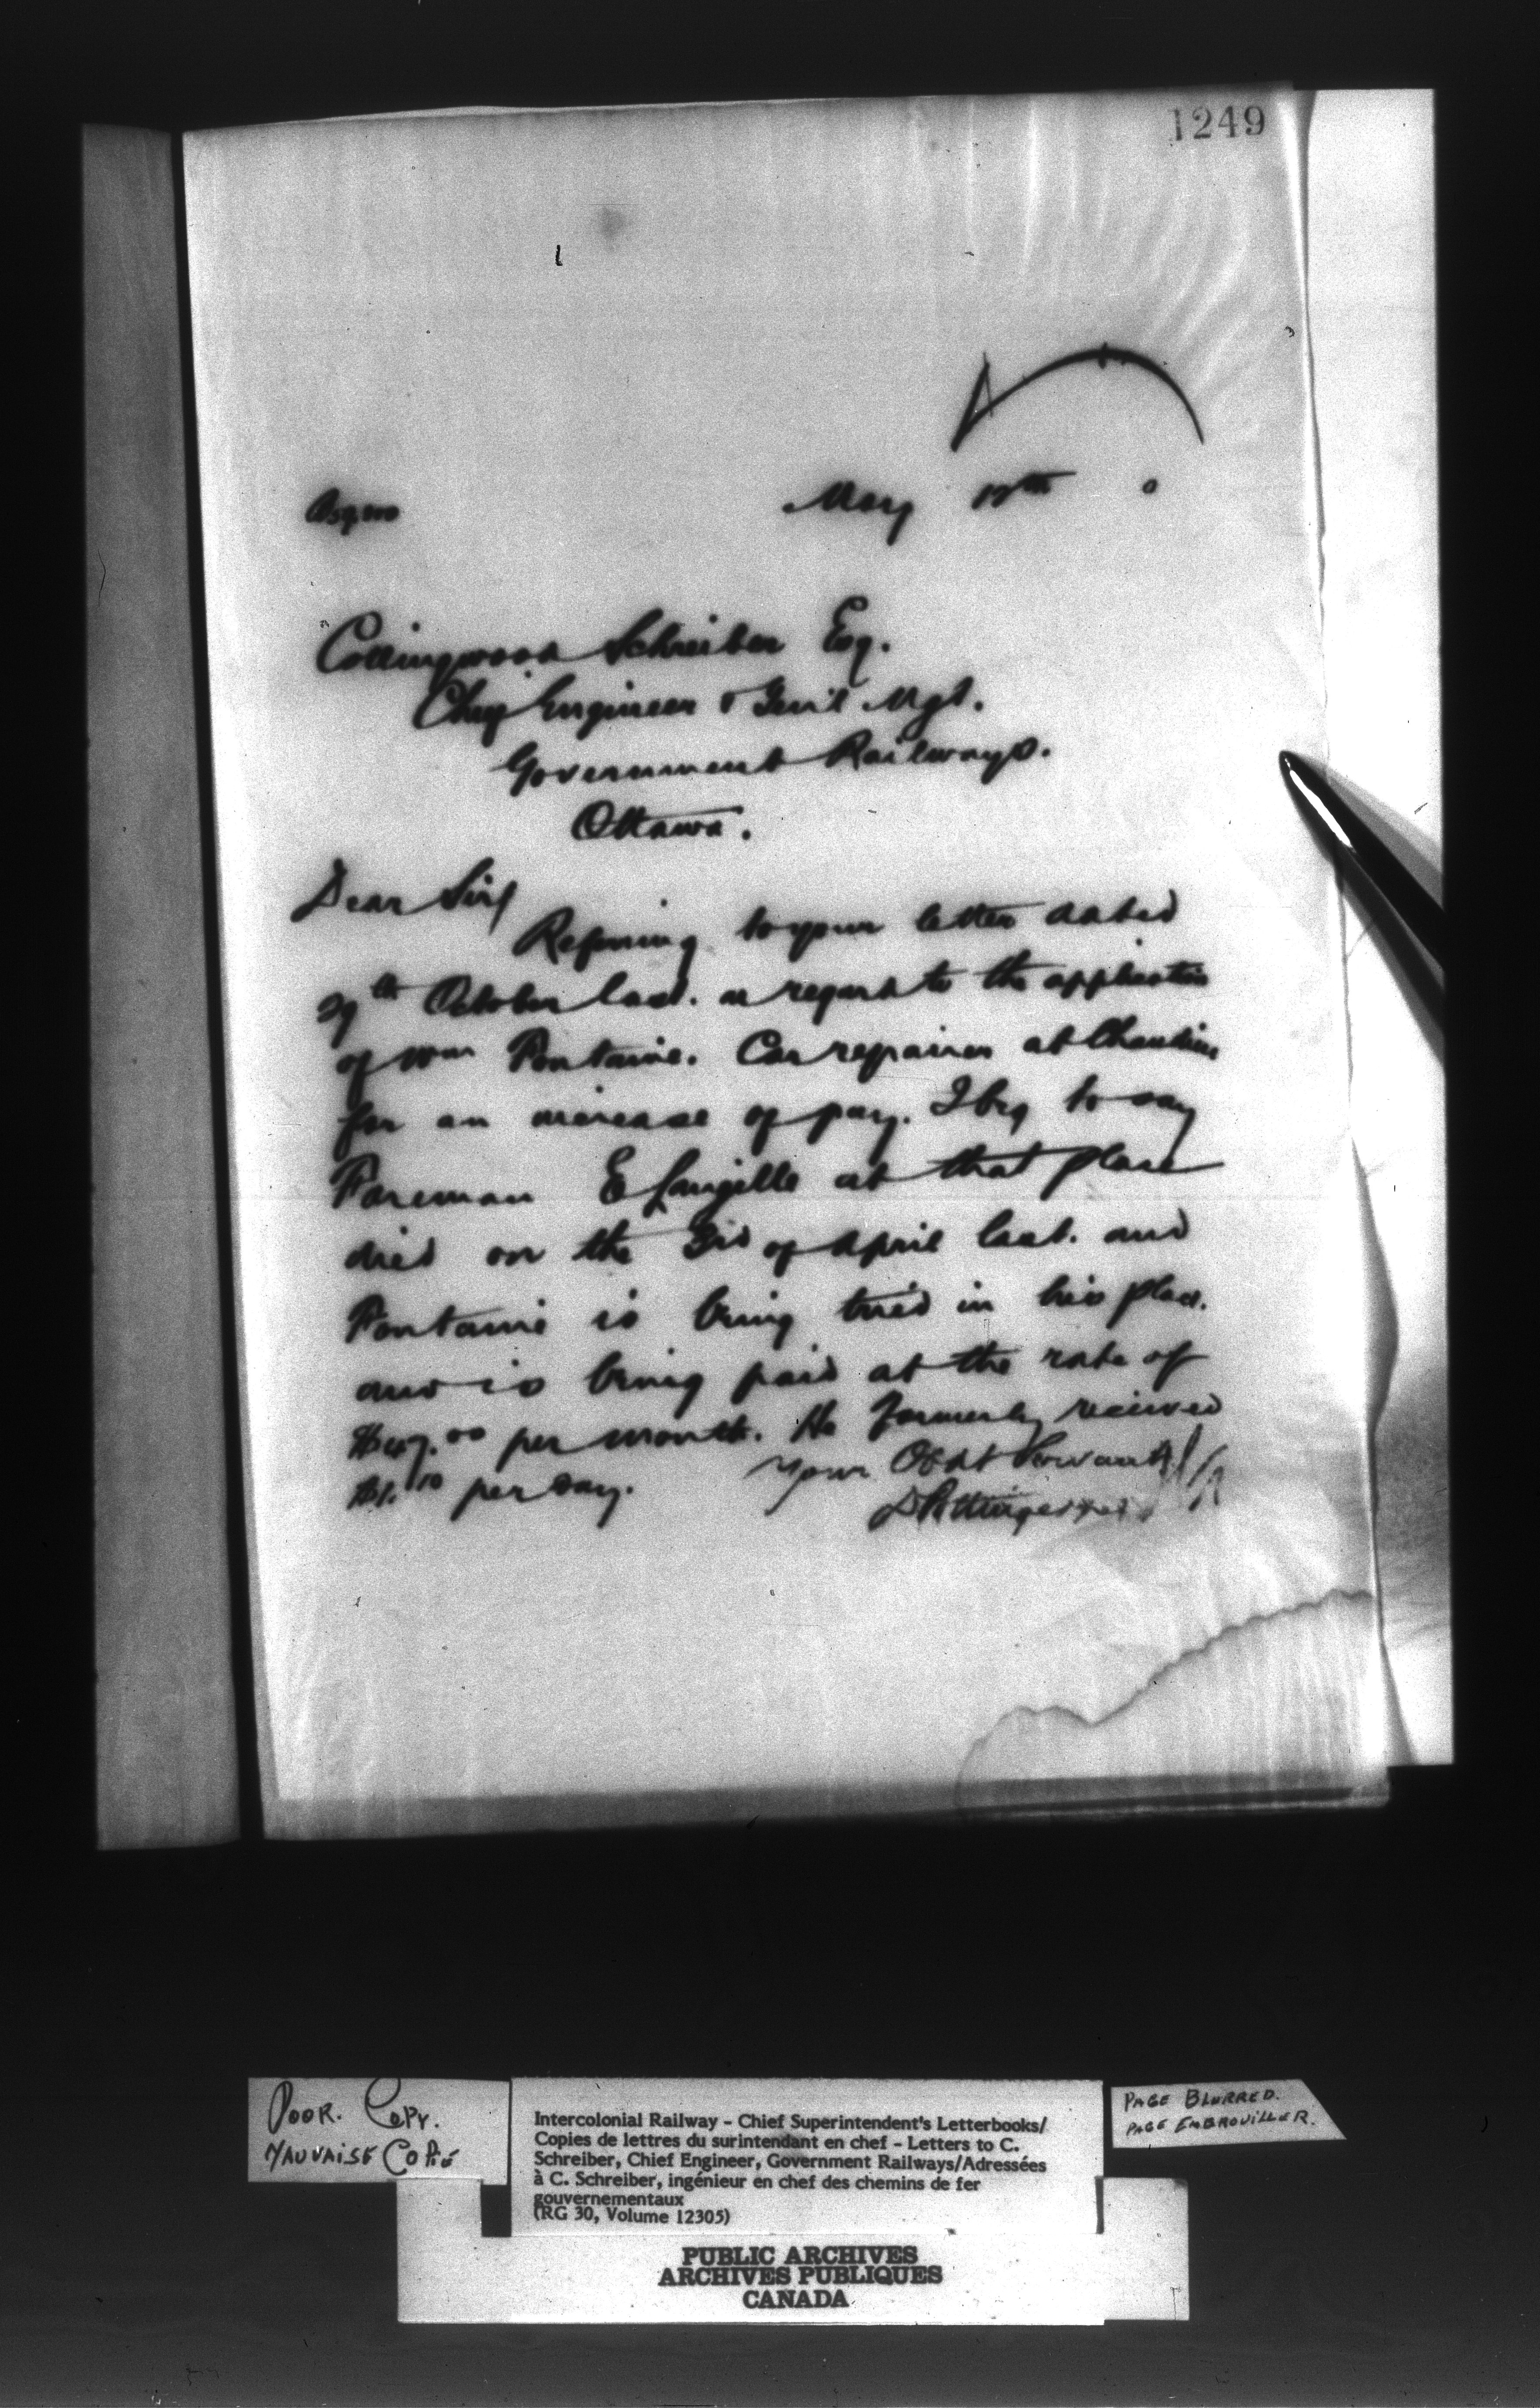 1249
May 17th 0
Collingwood Schreiber Esq.
Chief Engineer & Gen'l Mgr.
Government Railways.
Ottawa.
Dear Sir/
Referring to your letter dated
29th October last. as regards to the application
of Wm Fontaine. Car repairer at Chaudiere
for an increase of pay. I beg to say
Foreman E Langille at that place
died on the 3rd of April last. and
Fontaine is being tried in his place.
and is being paid at the rate of
per month. He formerly received
$1.10 per day. Your Obdt Servant
D Pottinger
POOR. COPY.
MAUVAISE COPIE
Intercolonial Railway - Chief Superintendent's Letterbooks/
Copies de lettres du surintendant en chef - Letters to C.
Schreiber, Chief Engineer, Government Railways/Adressées
à C. Schreiber, ingénieur en chef des chemins de fer
gouvernementaux
(RG 30, Volume 12305)
PAGE BLURRED.
PAGE EMBROUILLER.
PUBLIC ARCHIVES
ARCHIVES PUBLIQUES
CANADA